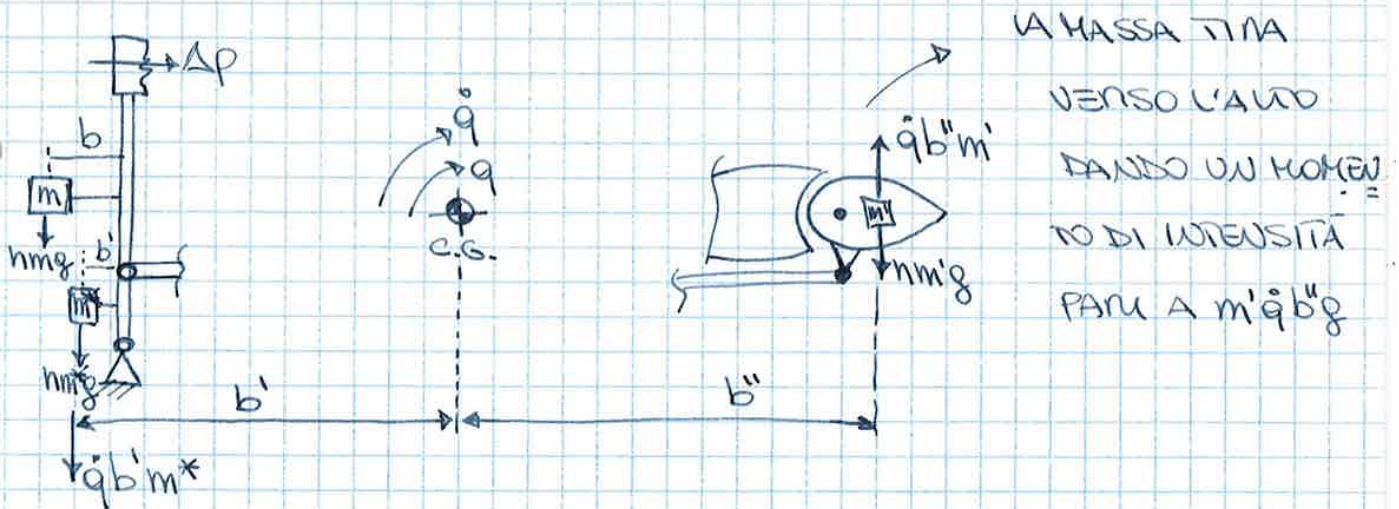 Δp
b
m
nmg
b'
m*
nm*g
q̇
q
C.G.
q̇b"m'
m'
nm'g
b'
b"
q̇b'm*
LA MASSA TIRA
VERSO L'ALTO
DANDO UN MOMEN
TO DI INTENSITÀ
PARI A m'q̇b"g